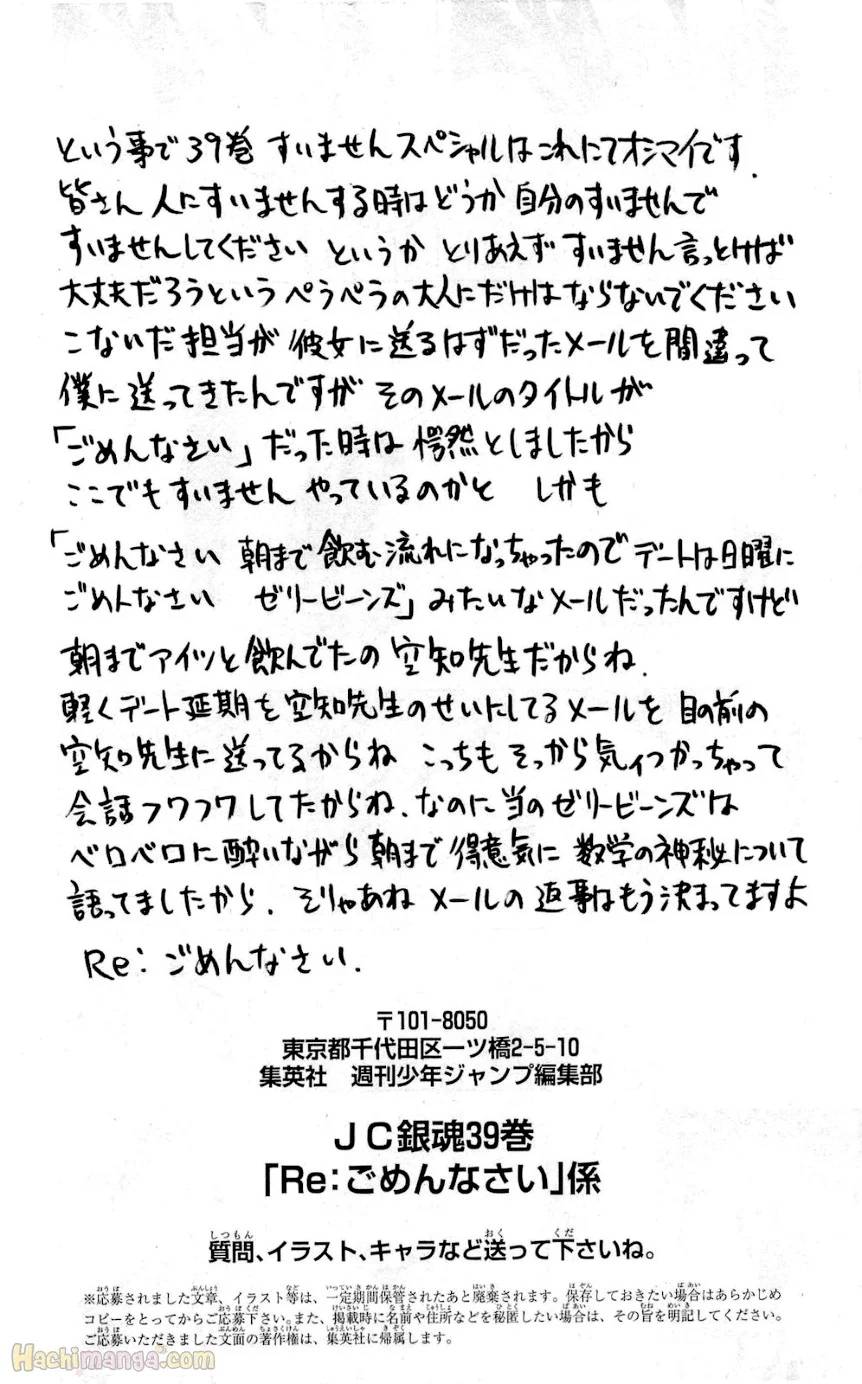 という事で39巻 すいませんスペシャルはこれにてオシマイです.
皆さん 人にすいませんする時はどうか 自分のすいませんで
すいませんしてください というか とりあえず すいません言っとけば
大丈夫だろうという ぺらぺらの大人にだけはならないでください
こないだ担当が 彼女に送るはずだったメールを間違って
僕に送ってきたんですが そのメールのタイトルが
「ごめんなさい」だった時は 愕然としましたから
ここでもすいません やっているのかと しかも
「ごめんなさい 朝まで飲む流れになっちゃったので デートは日曜に
ごめんなさい ゼリービーンズ」みたいなメールだったんですけど
朝までアイツと飲んでたの 空知先生だからね.
軽くデート延期を空知先生のせいにしてるメールを 目の前の
空知先生に送ってるからね こっちもそっから気ィつかっちゃって
会話フワフワしてたからね、なのに当のゼリービーンズは
ベロベロに酔いながら朝まで得意気に 数学の神秘について
語ってましたから. そりゃあね メールの返事はもう決まってますよ
Re:ごめんなさい.
〒101-8050
東京都千代田区一ツ橋2-5-10
集英社 週刊少年ジャンプ編集部
JC銀魂39巻
「Re:ごめんなさい」係
質問、イラスト、キャラなど送って下さいね。
※応募されました文章、イラスト等は、一定期間保管されたあと廃棄されます。保存しておきたい場合はあらかじめ
コピーをとってからご応募下さい。また、掲載時に名前や住所などを秘匿したい場合は、その旨を明記してください。
ご応募いただきました文面の著作権は、集英社に帰属します。
Hachimanga.com